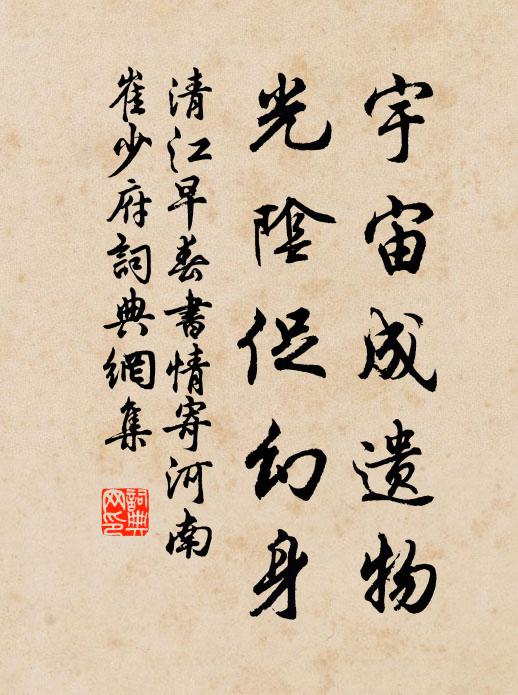 宇宙成遗物
光陰促幻身
清江早春書情寄河南
崔少府詞典網集
詞典
网印